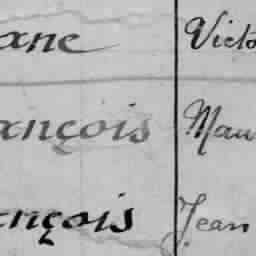 ane Victo
ançois Mau
nçois Jean